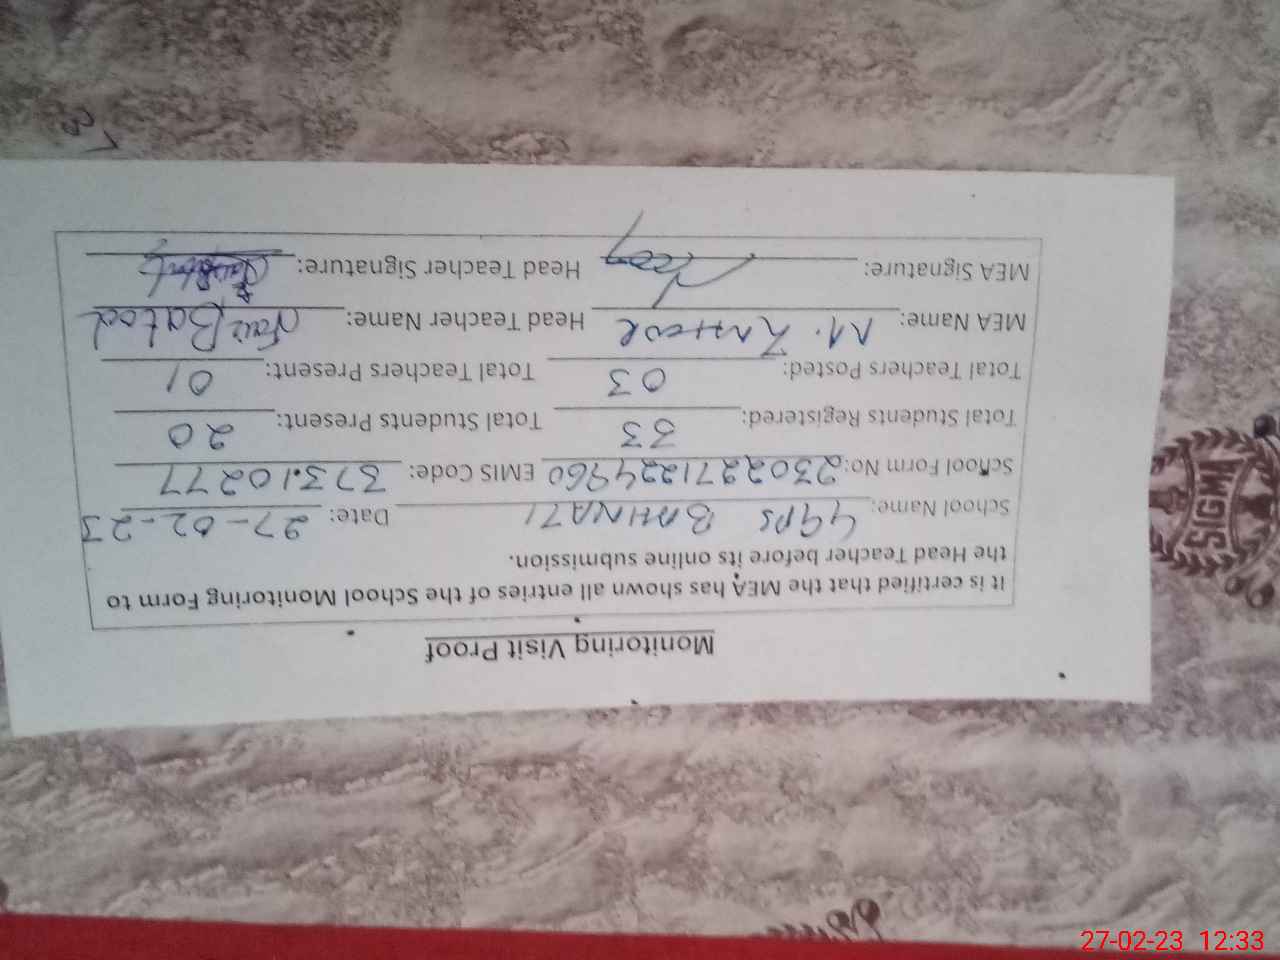 Monitoring Visit Proof
It is certified that the MEA has shown all entries of the School Monitoring Form to
the Head Teacher before its online submission.
School Name: GGPS BAHNATI Date: 27-02-23
School Form No: 2302271224960 EMIS Code: 37310277
Total Students Registered: 33 Total Students Present: 20
Total Teachers Posted: 03 Total Teachers Present: 01
MEA Name: M. Head Teacher Name: Batool
MEA Signature: Head Teacher Signature:
SIGMA
27-02-23 12:33